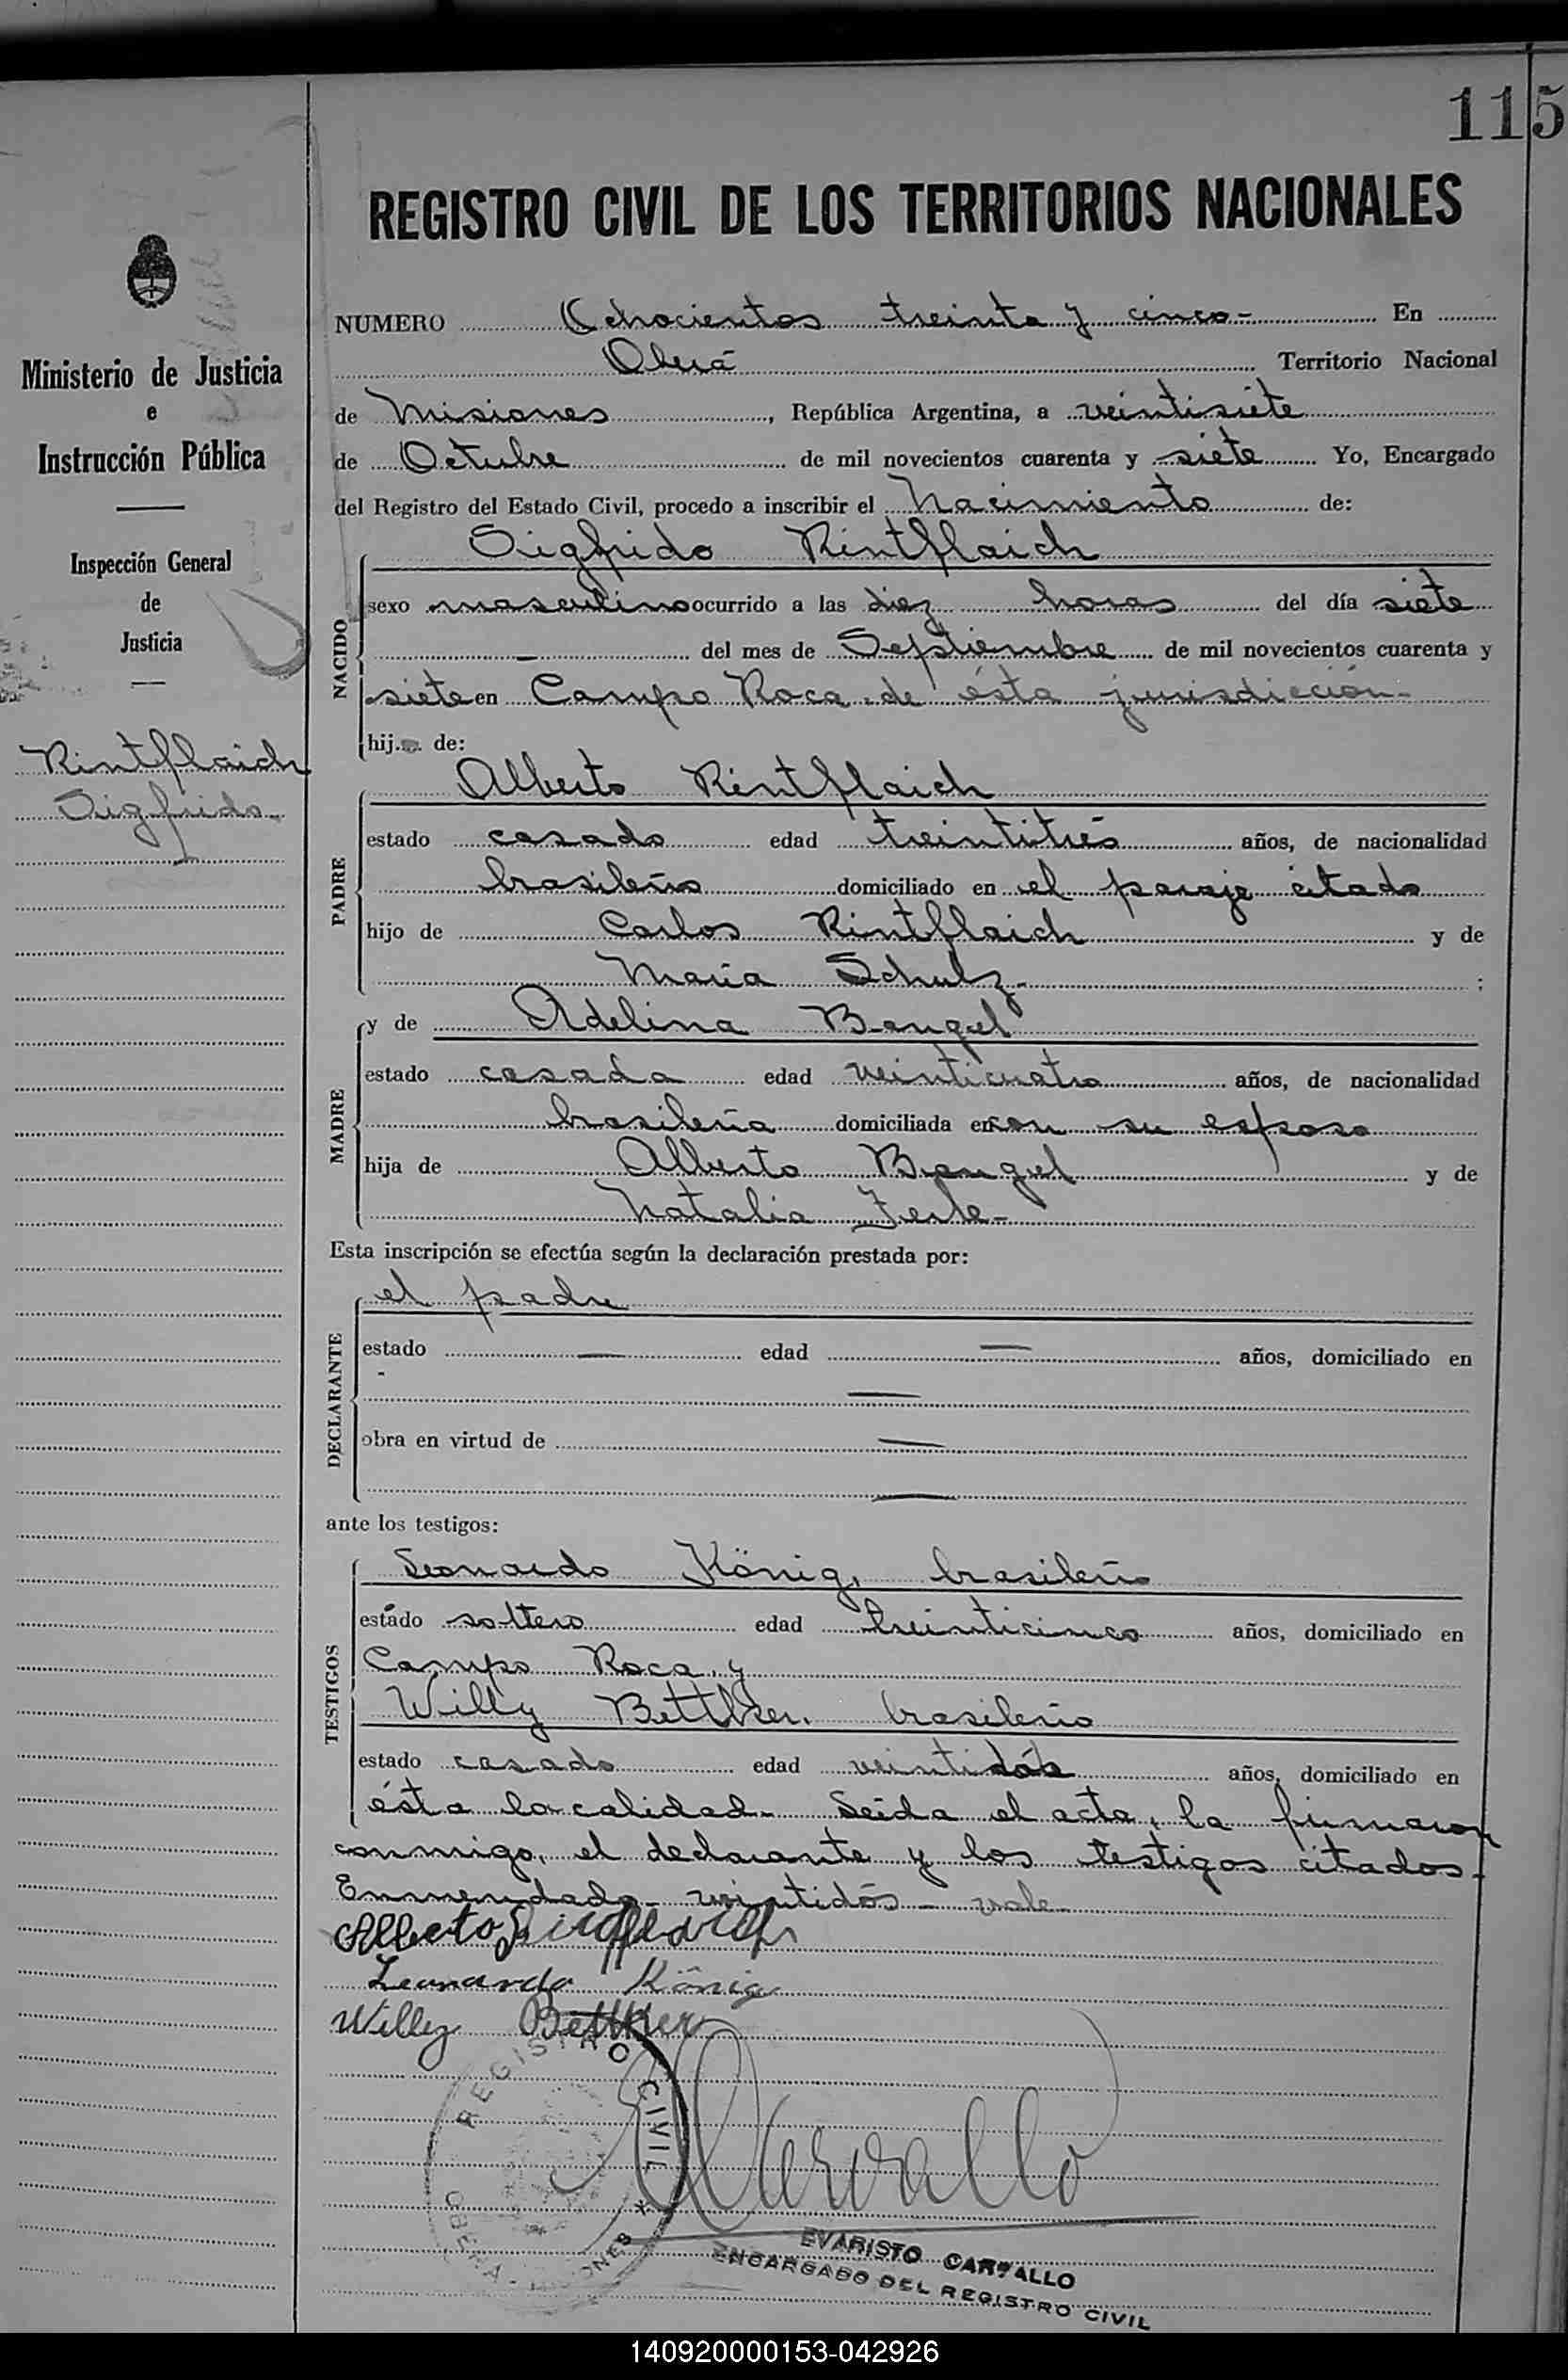 115
REGISTRO CIVIL DE LOS TERRITORIOS NACIONALES
Ministerio de Justicia
e
Instrucción Pública
Inspección General
de
Justicia
Rintflaich
Sigfrido
NUMERO Ochocientos treinta y cinco- En
Oberá Territorio Nacional
de Misiones, República Argentina, a veintisiete
de Octubre de mil novecientos cuarenta y siete Yo, Encargado
del Registro del Estado Civil, procedo a inscribir el Nacimiento de:
NACIDO
Sigfrido Rintflaich
sexo masculino ocurrido a las diez horas del día siete
- del mes de Septiembre de mil novecientos cuarenta y
siete en Campo Roca de ésta jurisdicción-
hijo de:
PADRE
Alberto Rintflaich
estado casado edad treintitrés años, de nacionalidad
brasileño domiciliado en el paraje citado
hijo de Carlos Rintflaich y de
María Schulz- ;
MADRE
y de Adelina Bengel
estado casada edad veinticuatro años, de nacionalidad
brasileña domiciliada en con su esposo
hija de Alberto Bengel y de
Natalia
Esta inscripción se efectúa según la declaración prestada por:
DECLARANTE
el padre
estado — edad — años, domiciliado en
—
obra en virtud de —
—
ante los testigos:
TESTIGOS
Leonardo König, brasileño
estado soltero edad treinticinco años, domiciliado en
Campo Roca y
Willy Bettker, brasileño
estado casado edad veintidós años, domiciliado en
ésta localidad- Leída el acta, la firmaron
conmigo, el declarante y los testigos citados-
Enmendado- veintidós- vale-
Alberto Rintflaich
Leonardo König
Willy Bettker
REGISTRO CIVIL *
Carvallo
EVARISTO CARVALLO
ENCARGADO DEL REGISTRO CIVIL
140920000153-042926